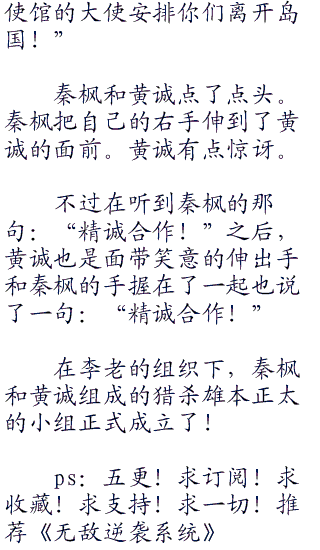 使馆的大使安排你们离开岛
国！”
秦枫和黄诚点了点头。
秦枫把自己的右手伸到了黄
诚的面前。黄诚有点惊讶。
不过在听到秦枫的那
句：“精诚合作！”之后，
黄诚也是面带笑意的伸出手
和秦枫的手握在了一起也说
了一句：“精诚合作！”
在李老的组织下，秦枫
和黄诚组成的猎杀雄本正太
的小组正式成立了！
ps：五更！求订阅！求
收藏！求支持！求一切！推
荐《无敌逆袭系统》